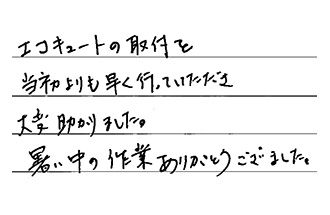 エコキュートの取付を
当初よりも早く行っていただき
大変助かりました。
暑い中の作業ありがとうございました。